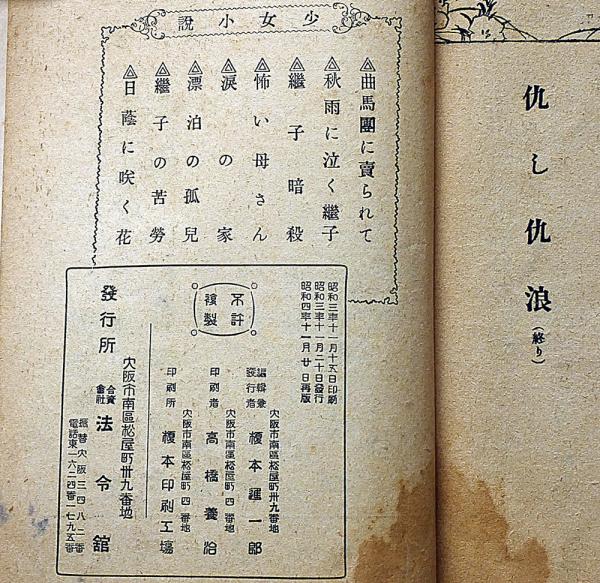 仇し仇浪（終り）
少女小説
曲馬團に賣られて
秋雨に泣く繼子
繼子暗殺
怖い母さん
涙の家
漂泊の孤兒
繼子の苦勞
日蔭に咲く花
昭和三年十一月十五日印刷
昭和三年十一月二十日發行
昭和四年十一月廿日再版
不許複製
大阪市南區松屋町卅九番地
編輯兼發行者 榎本 一郎
大阪市南區松屋町四番地
印刷者 高橋養治
大阪市南區松屋町四番地
印刷所 榎本印刷工場
大阪市南區松屋町卅九番地
發行所 合資會社 法令館
振替大阪三四八二番
電話東一六二四番一七九五番